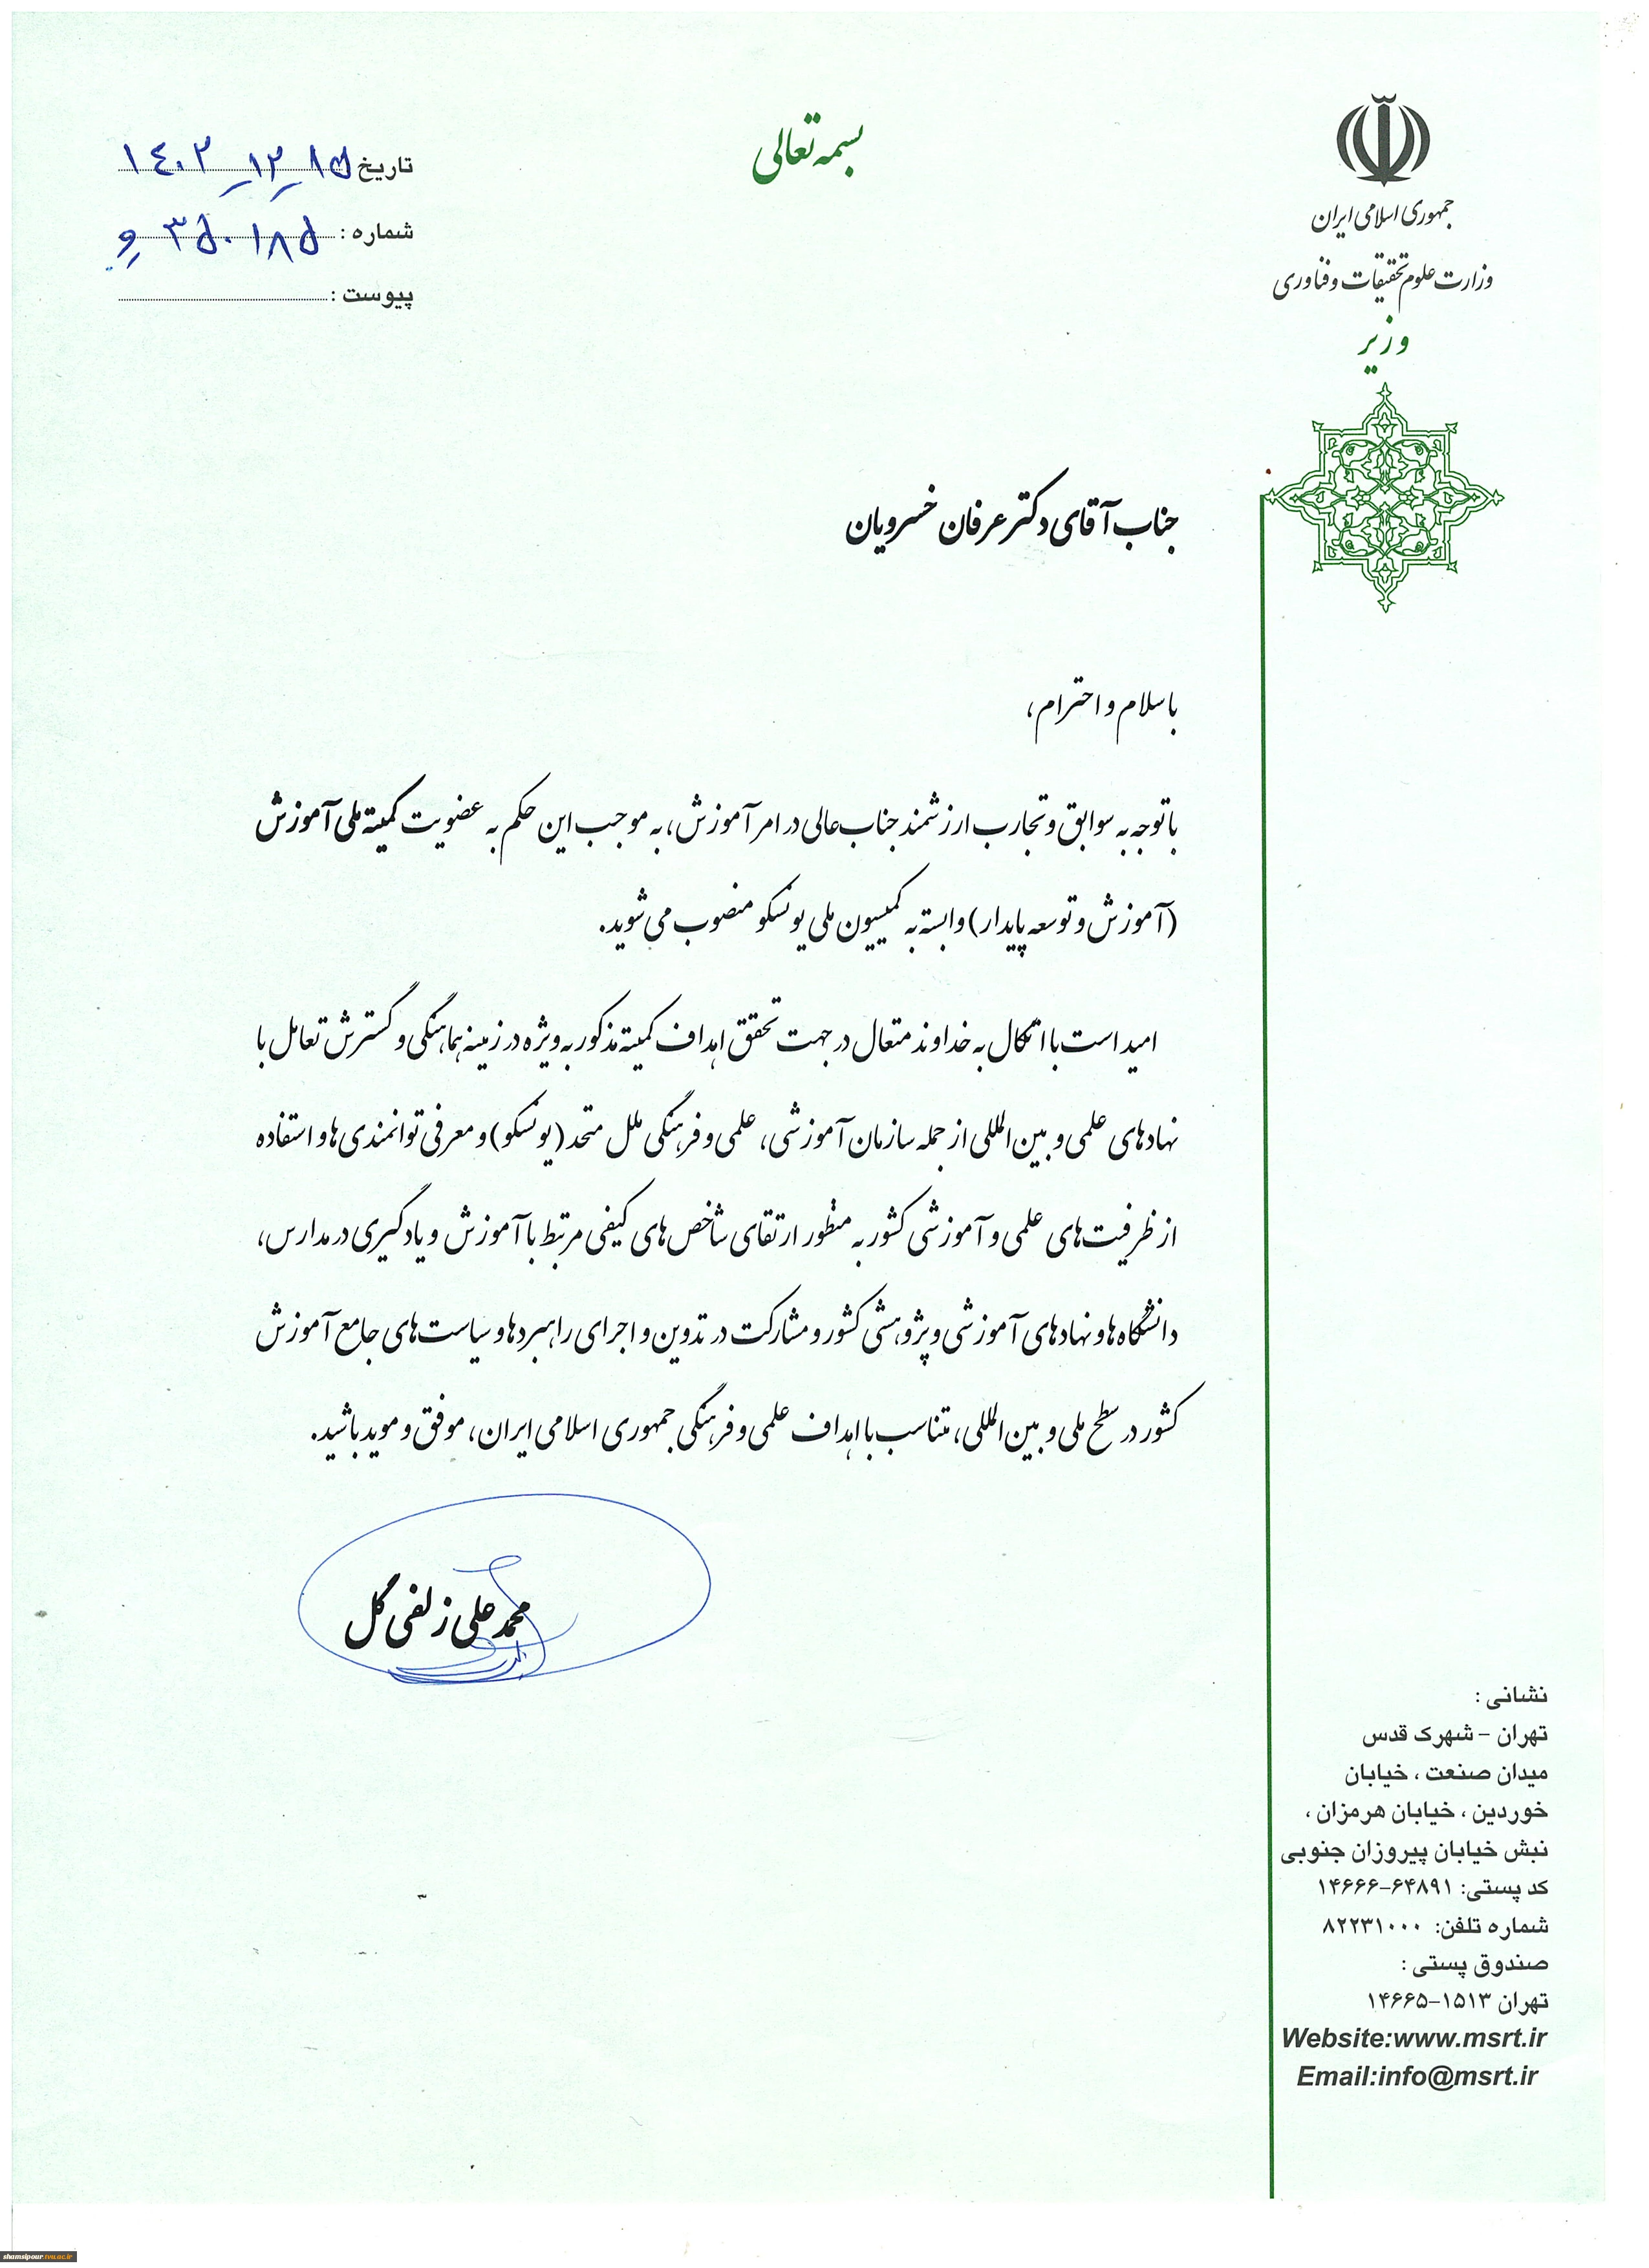 بسمه تعالی
جمهوری اسلامی ایران
وزارت علوم تحقیقات و فناوری
وزیر
تاریخ ۱۴۰۲-۱۲-۱۵
شماره : ۳۵۰۱۸۵ و
پیوست :
جناب آقای دکتر عرفان خسرویان
با سلام و احترام،
با توجه به سوابق و تجارب ارزشمند جناب‌عالی در امر آموزش، به موجب این حکم به عضویت کمیته ملی آموزش
(آموزش و توسعه پایدار) وابسته به کمیسیون ملی یونسکو منصوب می‌شوید.
امید است با اتکال به خداوند متعال در جهت تحقق اهداف کمیته مذکور به ویژه در زمینه هماهنگی و گسترش تعامل با
نهادهای علمی و بین‌المللی از جمله سازمان آموزشی، علمی و فرهنگی ملل متحد (یونسکو) و معرفی توانمندی‌ها و استفاده
از ظرفیت‌های علمی و آموزشی کشور به منظور ارتقای شاخص‌های کیفی مرتبط با آموزش و یادگیری در مدارس،
دانشگاه‌ها و نهادهای آموزشی و پژوهشی کشور و مشارکت در تدوین و اجرای راهبردها و سیاست‌های جامع آموزش
کشور در سطح ملی و بین‌المللی، متناسب با اهداف علمی و فرهنگی جمهوری اسلامی ایران، موفق و موید باشید.
محمدعلی زلفی گل
نشانی :
تهران - شهرک قدس
میدان صنعت ، خیابان
خوردین ، خیابان هرمزان ،
نبش خیابان پیروزان جنوبی
کد پستی: ۱۴۶۶۶-۶۴۸۹۱
شماره تلفن: ۸۲۲۳۱۰۰۰
صندوق پستی :
تهران ۱۵۱۳-۱۴۶۶۵
Website:www.msrt.ir
Email:info@msrt.ir
shamsipour.tvu.ac.ir